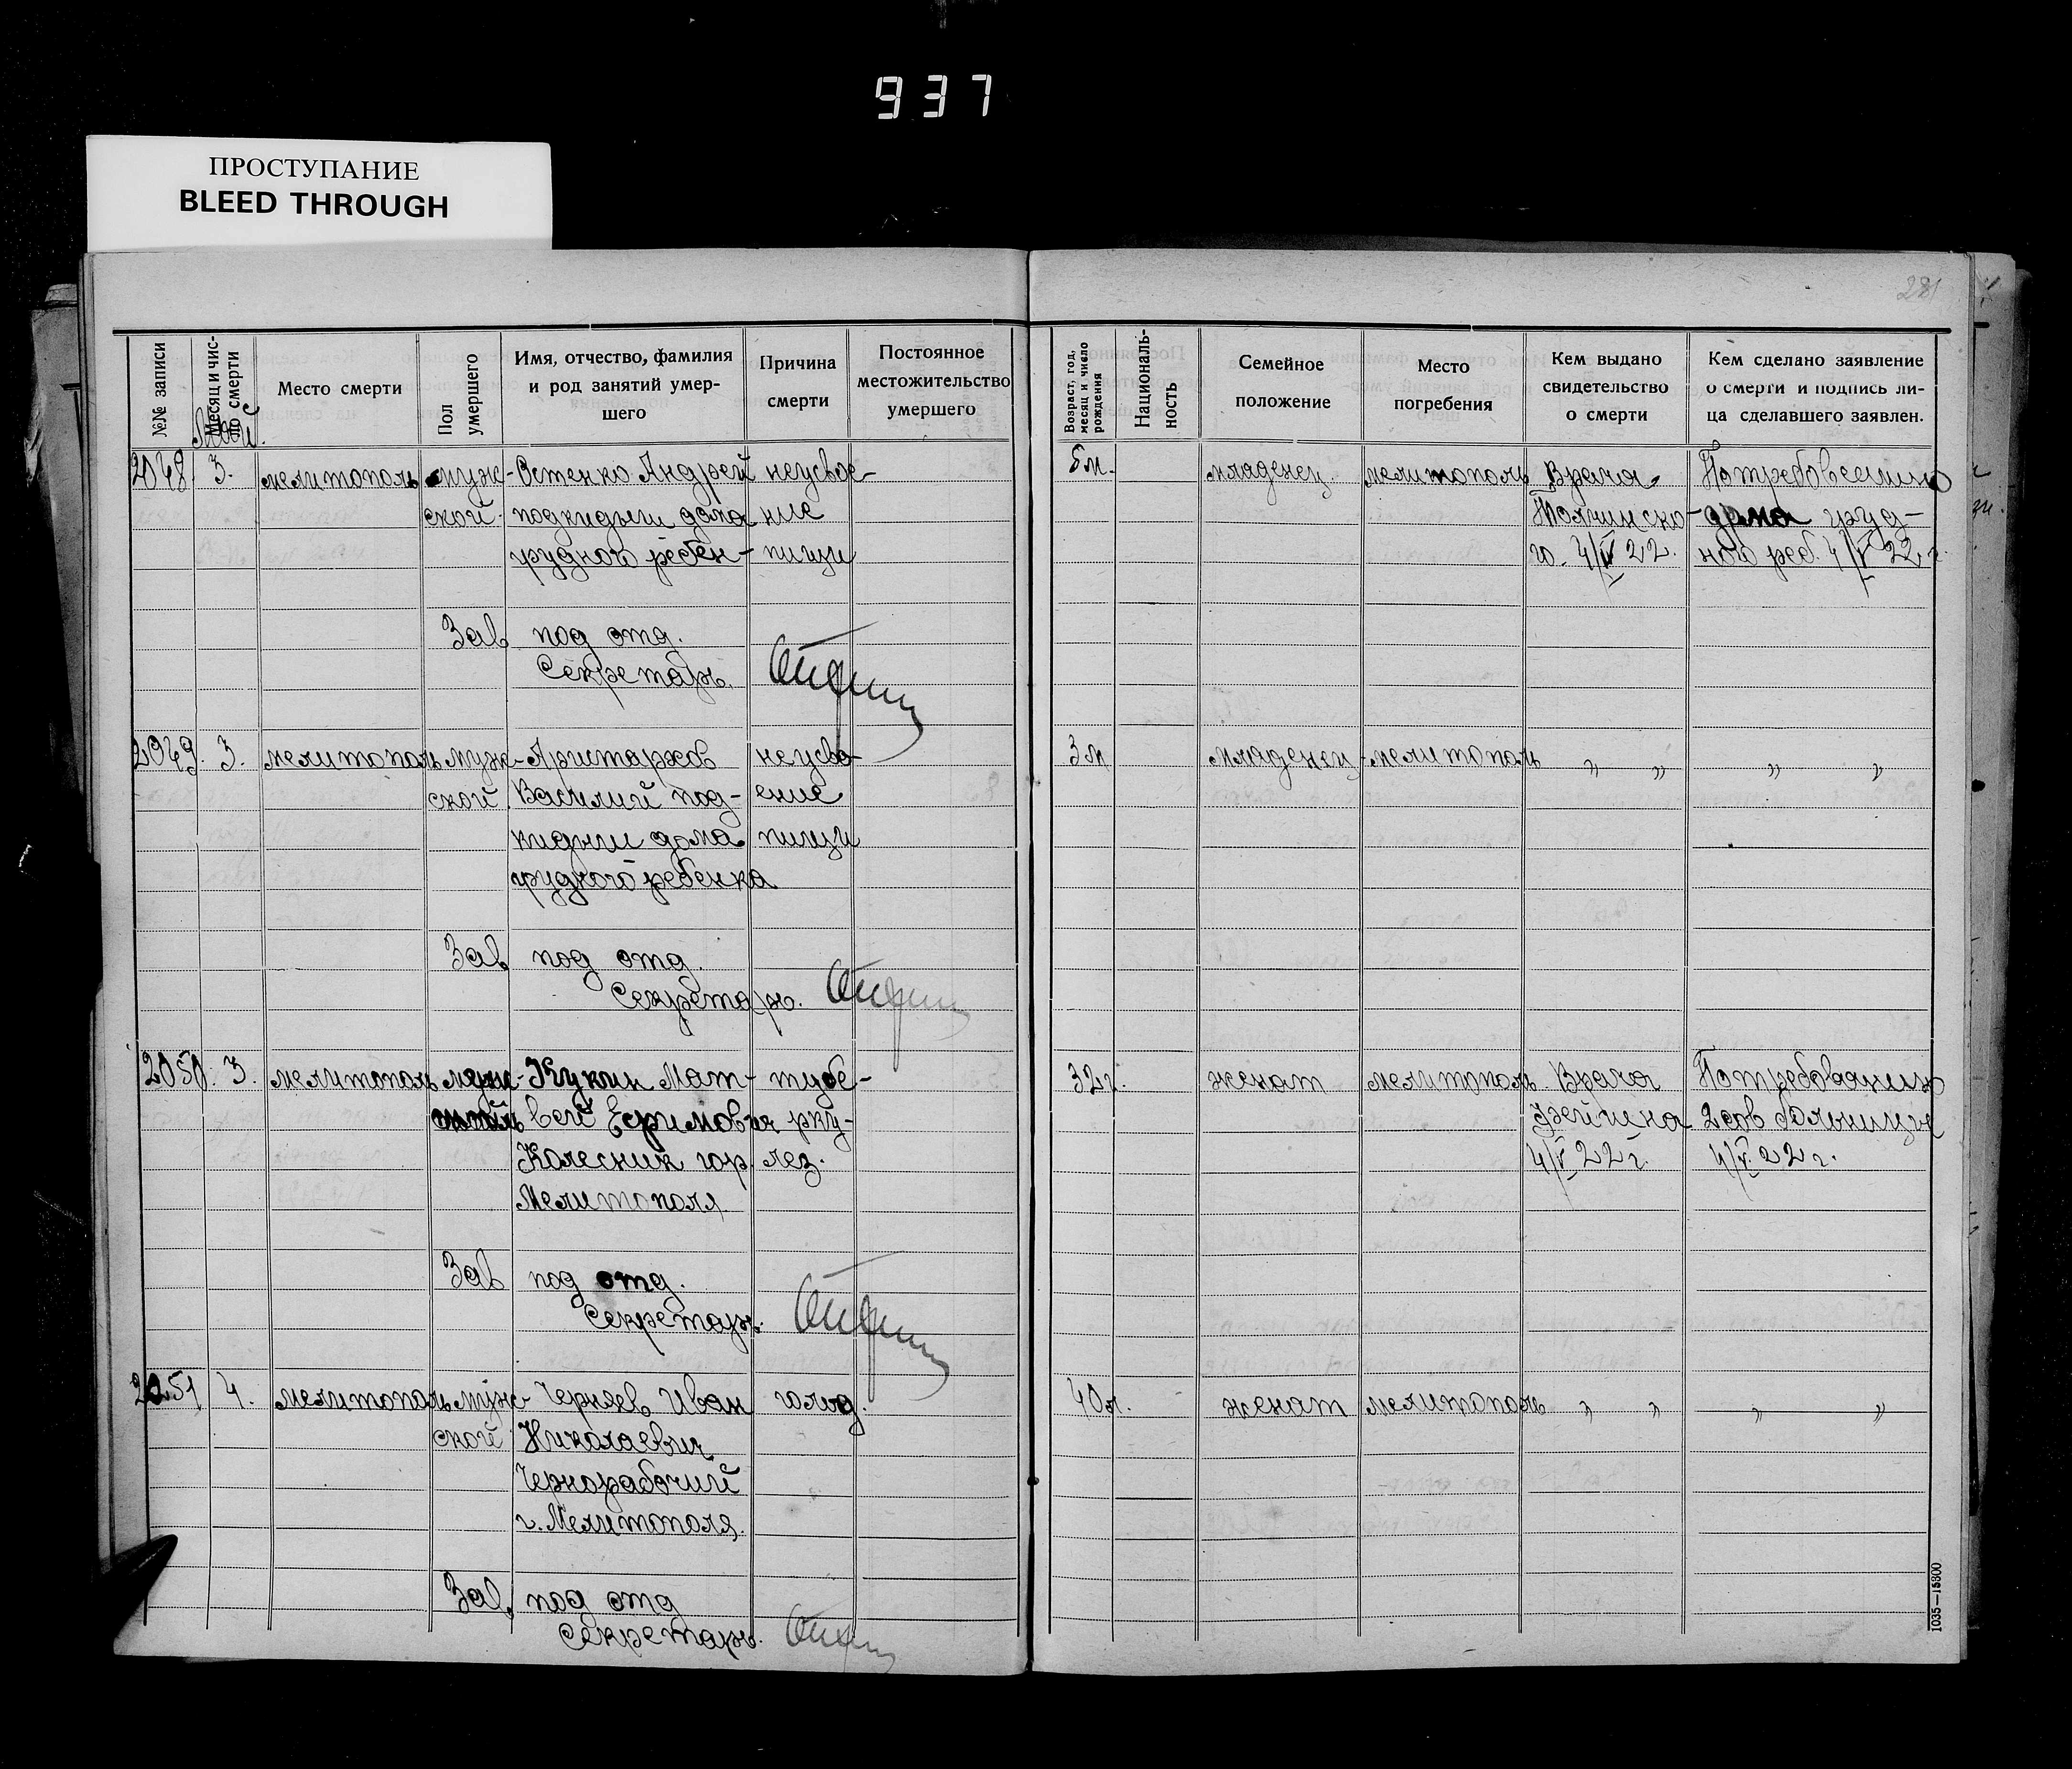 937
ПРОСТУПАНИЕ
BLEED THROUGH
281
№№ записи
Месяц и чис-
ло смерти
Место смерти
Пол
умершего
Имя, отчество, фамилия
и род занятий умер-
шего
Причина
смерти
Постоянное
местожительство
умершего
Возраст, год,
месяц и число
рождения
Националь-
ность
Семейное
положение
Место
погребения
Кем выдано
свидетельство
о смерти
Кем сделано заявление
о смерти и подпись ли-
ца сделавшего заявлен.
Май
2048 3. мелитополь муж- Остенко Андрей неусвое- 6 м. младенец мелитополь Врача Потребованию
ской подкидыш дома ние Толчинско- дома груд-
грудного ребен- пищи го 4/V 22. ного реб. 4/V 22 г.
Зав под отд.
Секретарь
2049. 3. мелитополь муж- Аристархов неусво- 3 м младенец мелитополь " " " "
ской Василий под- ение
кидыш дома пищи
грудного ребенка
Зав под отд.
Секретарь.
2050. 3. мелитополь муж- Кукин Мат- тубе- 32 г. женат мелитополь Врача Потребованию
вей Ефимович рку- 2 сов больницы
Колесник гор. лез. 4/V 22 г. 4/V. 22 г.
Мелитополя
Зав под отд.
Секретарь.
2051 4. мелитополь муж- Черняев Иван голод. 40 л. женат мелитополь " " " "
ской Николаевич
Чернорабочий
г. Мелитополя.
Зав. под отд
Секретарь.
1035—15800